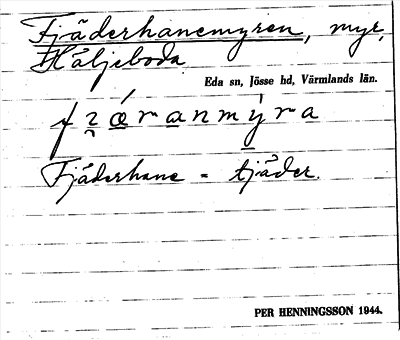 Fjäderhanemyren, myr,
Häljeboda
Eda sn, Jösse hd, Värmlands län.
Fjäderhane = tjäder.
PER HENNINGSSON 1944.